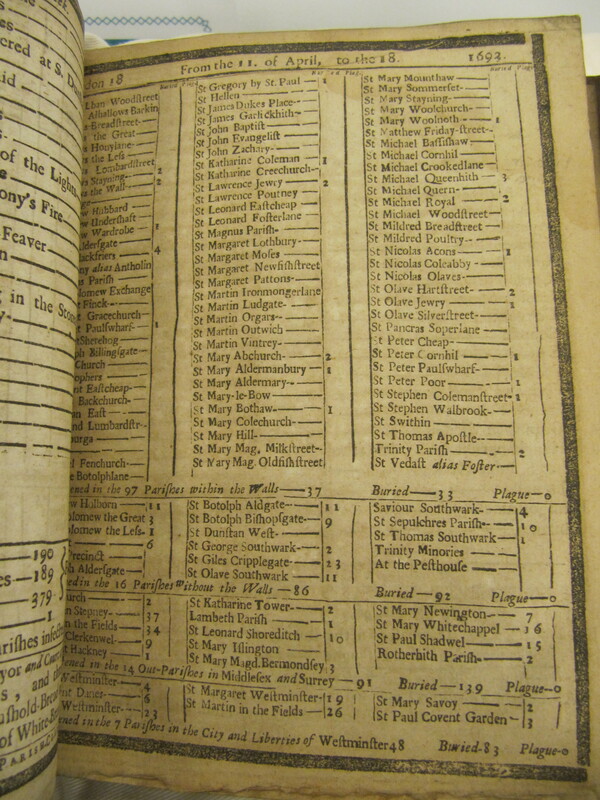 ered at S.
aid
of the Lights
ony's Fire
Feaver
in the
190
es—189
379
1
arishes infec
yor and
s, and
of White
don 18 From the 11. of April, to the 18. 1693.
Buried Plag.
lban Woodstreet
Alhallows Barkin
Breadstreet
the Great
Honylane
the Less
Lombardstreet
Stayning 2
the Wall 2
Hubbard
Undershaft
Wardrobe 1
ldersgate
ackfriers 4
ny alias Antholin
Parish
lomew Exchange
Finck
Gracechurch
Paulswharf 1
tShetehog
ph Billingsgate
Church
ophers
nt Eastcheap
Backchurch
on East
nd Lumbardstr
burga
d Fenchurch
e Botolphlane
St Gregory by St. Paul 1
St Hellen
St James Dukes Place
St James Garlickhith
St John Baptist
St John Evangelist
St John Zachary
St Katharine Coleman 1
St Katharine Creechurch
St Lawrence Jewry 2
St Lawrence Poutney
St Leonard Eastcheap
St Leonard Fosterlane
St Magnus Parish
St Margaret Lothbury
St Margaret Moses
St Margaret Newfishstreet
St Margaret Pattons
St Martin Ironmongerlane
St Martin Ludgate
St Martin Orgars
St Martin Outwich
St Martin Vintrey
St Mary Abchurch 2
St Mary Aldermanbury 1
St Mary Aldermary
St Mary-le-Bow
St Mary Bothaw 1
St Mary Colechurch
St Mary Hill
St Mary Mag, Milkstreet
St Mary Mag. Oldfishstreet
St Mary Mounthaw
St Mary Sommerset
St Mary Stayning
St Mary Woolchurch
St Mary Woolnoth 1
St Matthew Friday-street
St Michael Bassishaw
St Michael Cornhil
St Michael Crookedlane
St Michael Queenhith 3
St Michael Quern
St Michael Royal 2
St Michael Woodstreet
St Mildred Breadstreet
St Mildred Poultry
St Nicolas Acons 1
St Nicolas Coleabby
St Nicolas Olaves
St Olave Hartstreet 2
St Olave Jewry 1
St Olave Silverstreet
St Pancras Soperlane
St Peter Cheap
St Peter Cornhil 1
St Peter Paulswharf
St Peter Poor 1
St Stephen Colemanstreet 1
St Stephen Walbrook
St Swithin
St Thomas Apostle
Trinity Parish 2
St Vedast alias Foster
ened in the 97 Parishes within the Walls—37 Buried—33 Plague—0
w Holborn 11
olomew the Great 3
olomew the Less 1
6
Precinct
ph Aldersgate
St Botolph Aldgate 11
St Botolph Bishopsgate 9
St Dunstan West
St George Southwark 2
St Giles Cripplegate 23
St Olave Southwark 11
Saviour Southwark 4
St Sepulchres Parish 10
St Thomas Southwark 1
Trinity Minories
At the Pesthouse
ed in the 16 Parishes without the Walls—86 Buried—92 Plague—0
urch 2
n Stepney 37
n the Fields 34
Clerkenwel 9
t Hackney 1
St Katharine Tower 2
Lambeth Parish 1
St Leonard Shoreditch 10
St Mary Islington
St Mary Magd. Bermondsey 3
St Mary Newington 7
St Mary Whitechappel 16
St Paul Shadwel 15
Rotherhith Parish 2
ened in the 14 Out-Parishes in Middlesex and Surrey—91 Buried—139 Plague—0
Westminster 4
nt Danes 6
Westminster 23
St Margaret Westminster 19
St Martin in the Fields 26
St Mary Savoy 2
St Paul Covent Garden 3
ened in the 7 Parishes in the City and Liberties of Westminster 48 Buried—83 Plague—0